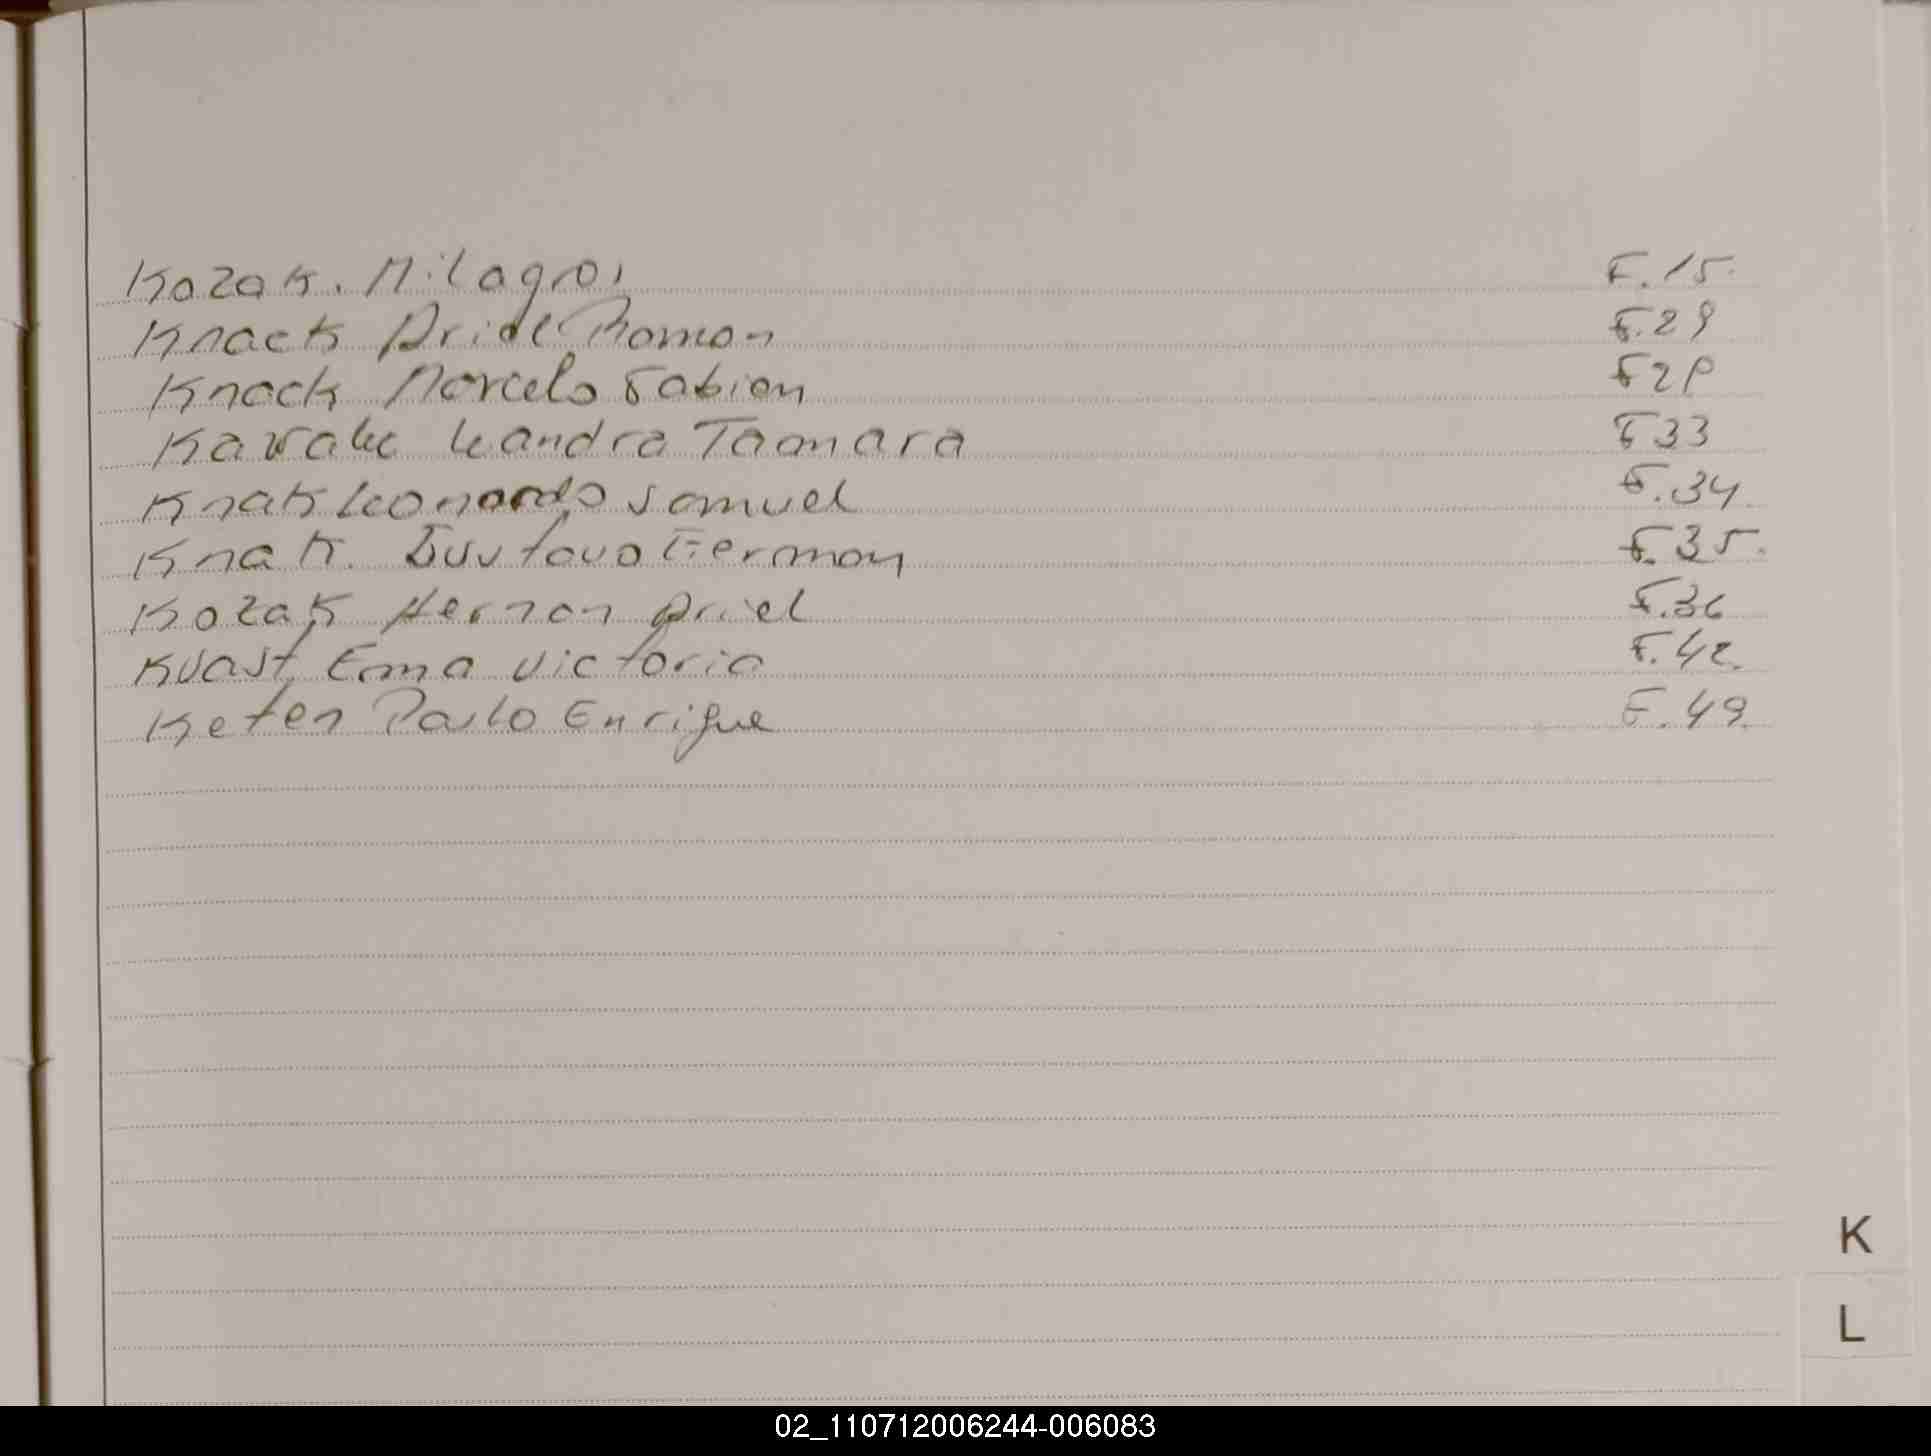 Kozak. Milagros F.15.
Knack Ariel Ramon F.29
Knack Marcelo Fabian F29
Leandra Tamara F33
Knak Leonardo Samuel F.34.
Knak. Gustavo German F.35.
Kozak Hernan Ariel F.36
Kvast Ema Victoria F.42.
Keten Pablo Enrique F.49.
K
L
02_110712006244-006083